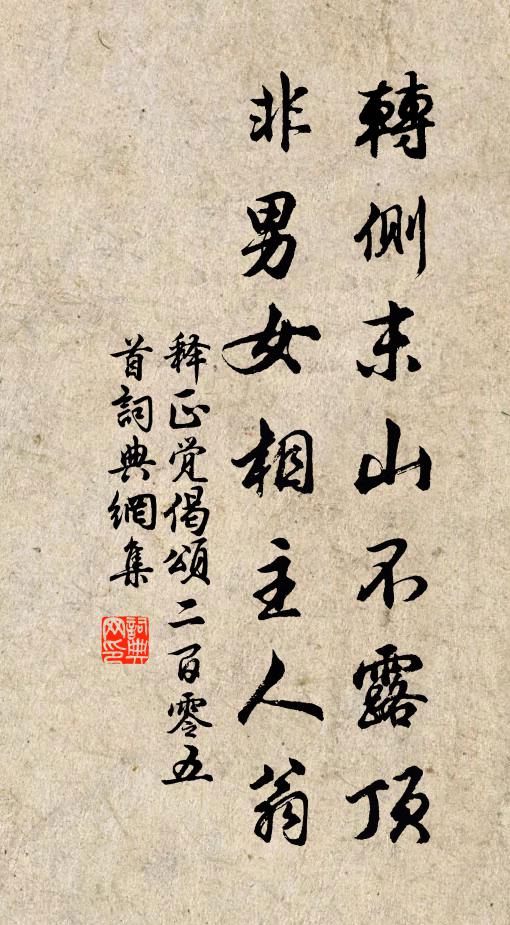 轉側末山不露頂
非男女相主人翁
释正觉偈頌二百零五
首詞典網集
詞典網印